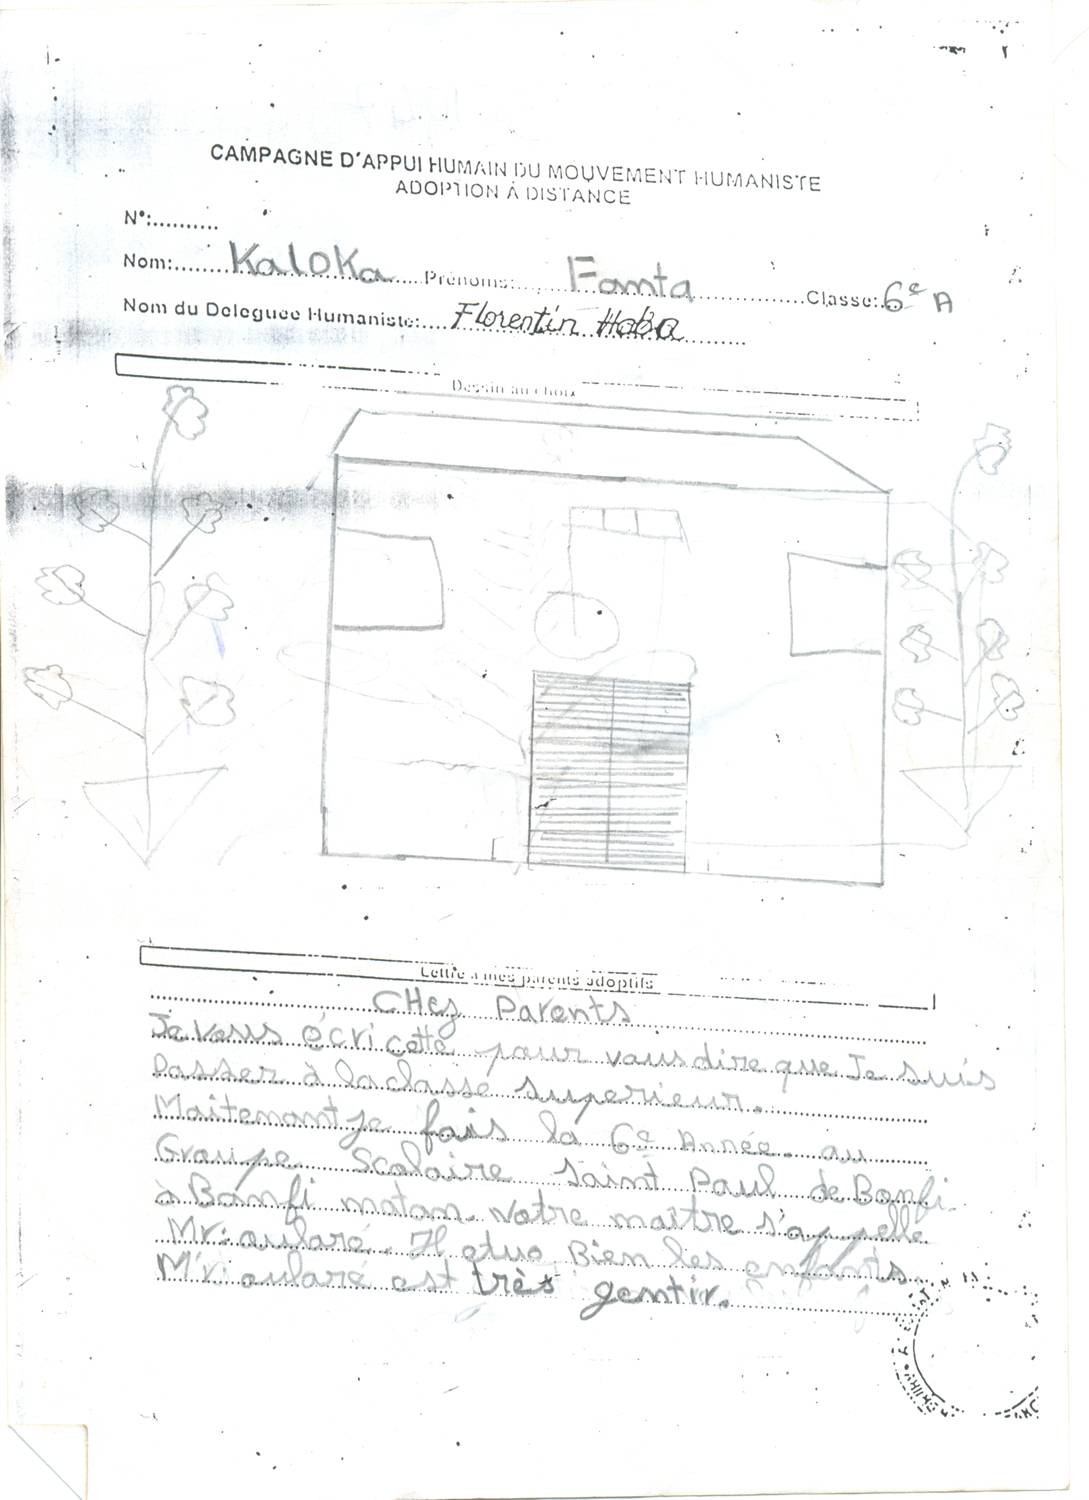 CAMPAGNE D'APPUI HUMAIN DU MOUVEMENT HUMANISTE
ADOPTION À DISTANCE
N°:..........
Nom:....... Kaloka .... Prénoms:.... Fanta ............Classe: 6e A
Nom du Deleguee Humaniste:.... Florentin Haba ..........
Dessin au choix
Lettre à mes parents adoptifs
CHez Parents
Je vous écri cette pour vous dire que Je suis
Passer à la classe superieur.
Maitenant Je fais la 6e Année au
Groupe Scolaire Saint Paul de Bonfi
à Bonfi matam. Notre maître s'appelle
Mr: oularé. Il Bien les enfants
Mr: oularé est très gentir.